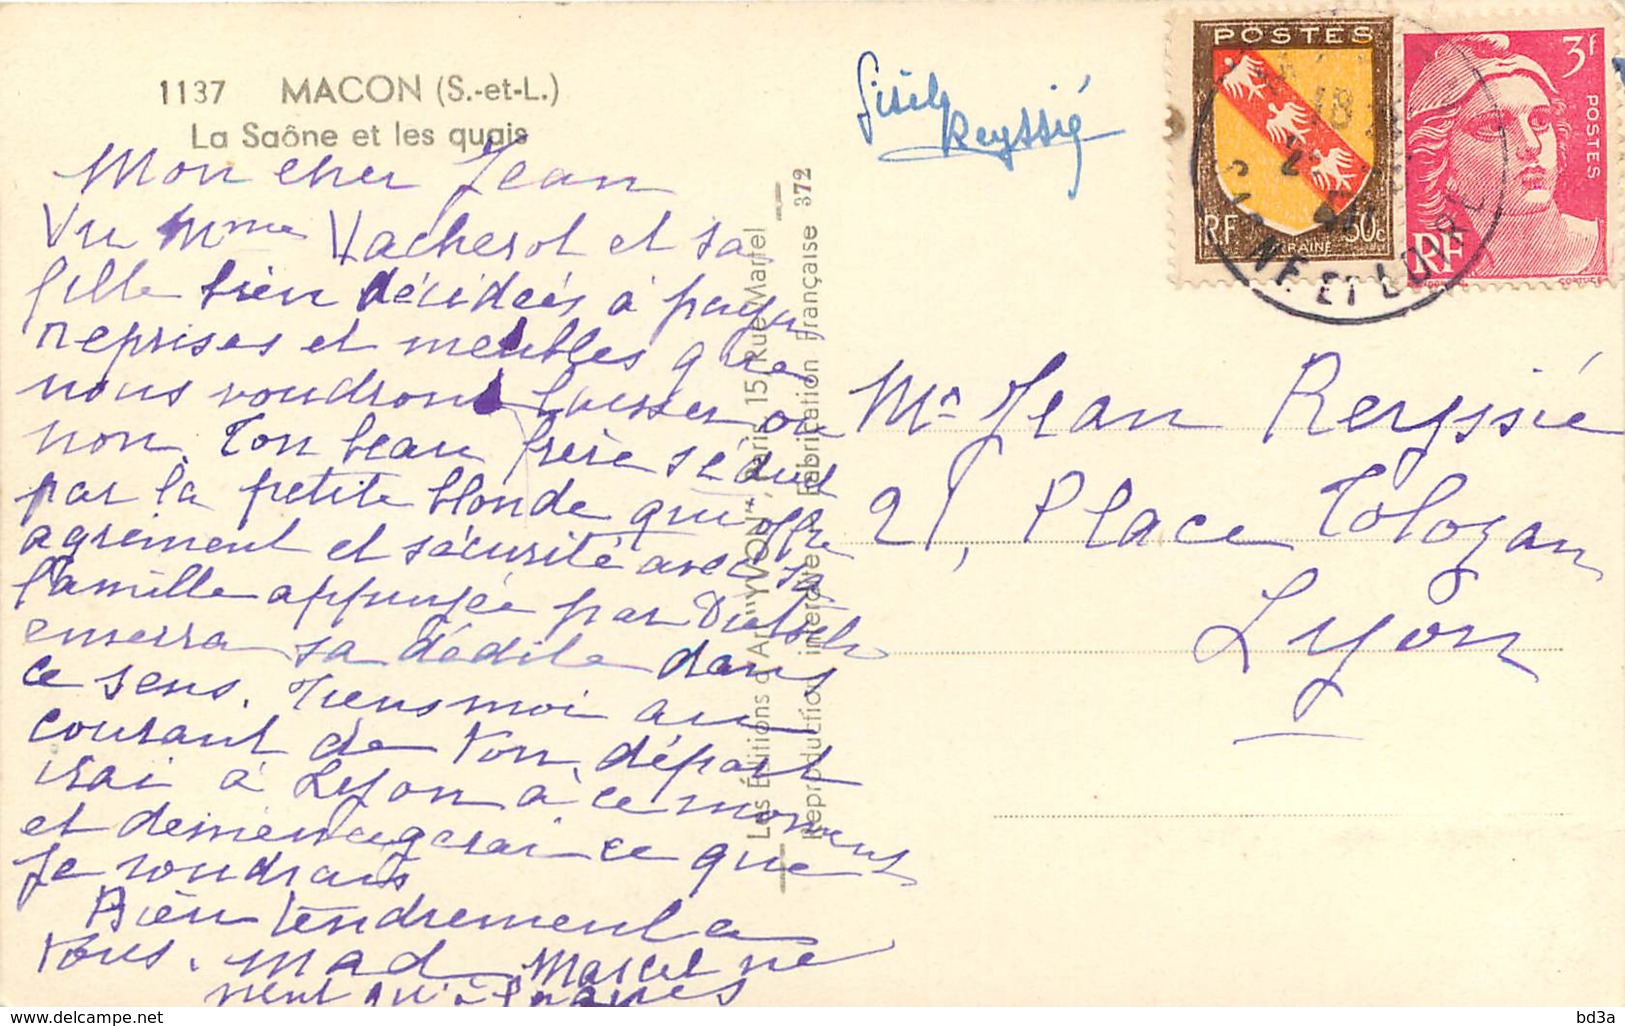 1137 MACON (S.-et-L.)
La Saône et les quais
Mon cher Jean
Vu Mme Vacherot et sa
fille bien décidées à payer
reprises et meubles que
nous voudrons laisser ou
non. Ton beau frère séduit
par la petite blonde qui offre
agrément et sécurité avec sa
famille appuyée par
emerra sa dédite dans
ce sens. Tiens moi au
courant de ton départ
irai à Lyon à ce moment
et déménagerai ce que
je voudrais
Bien tendrement à
tous. Mad Marcel ne
vient qu'à Pâques
Les Éditions d'Art "YVON", Paris, 15, Rue Martel
Reproduction interdite Fabrication Française 372
Gisèle
Reyssié
POSTES
RF
LORRAINE
50c
3f
POSTES
RF
18
SAÔNE ET LOIRE
Mr Jean Reyssié
21, Place Tolozan
Lyon
www.delcampe.net
bd3a